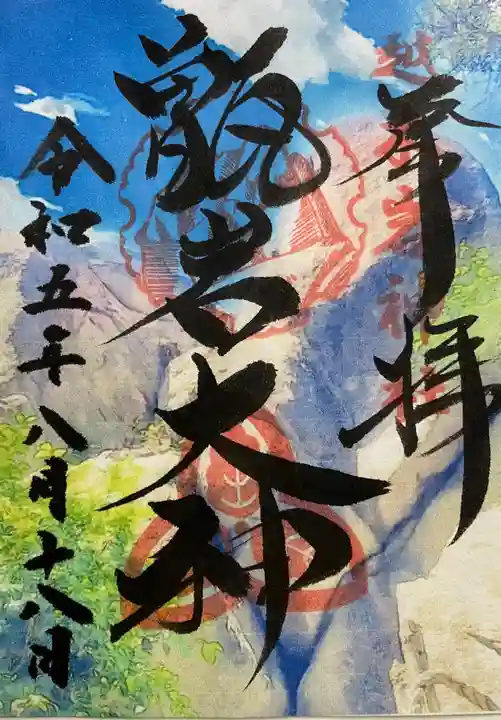 奉拝
甑岩大神
令和五年八月十八日